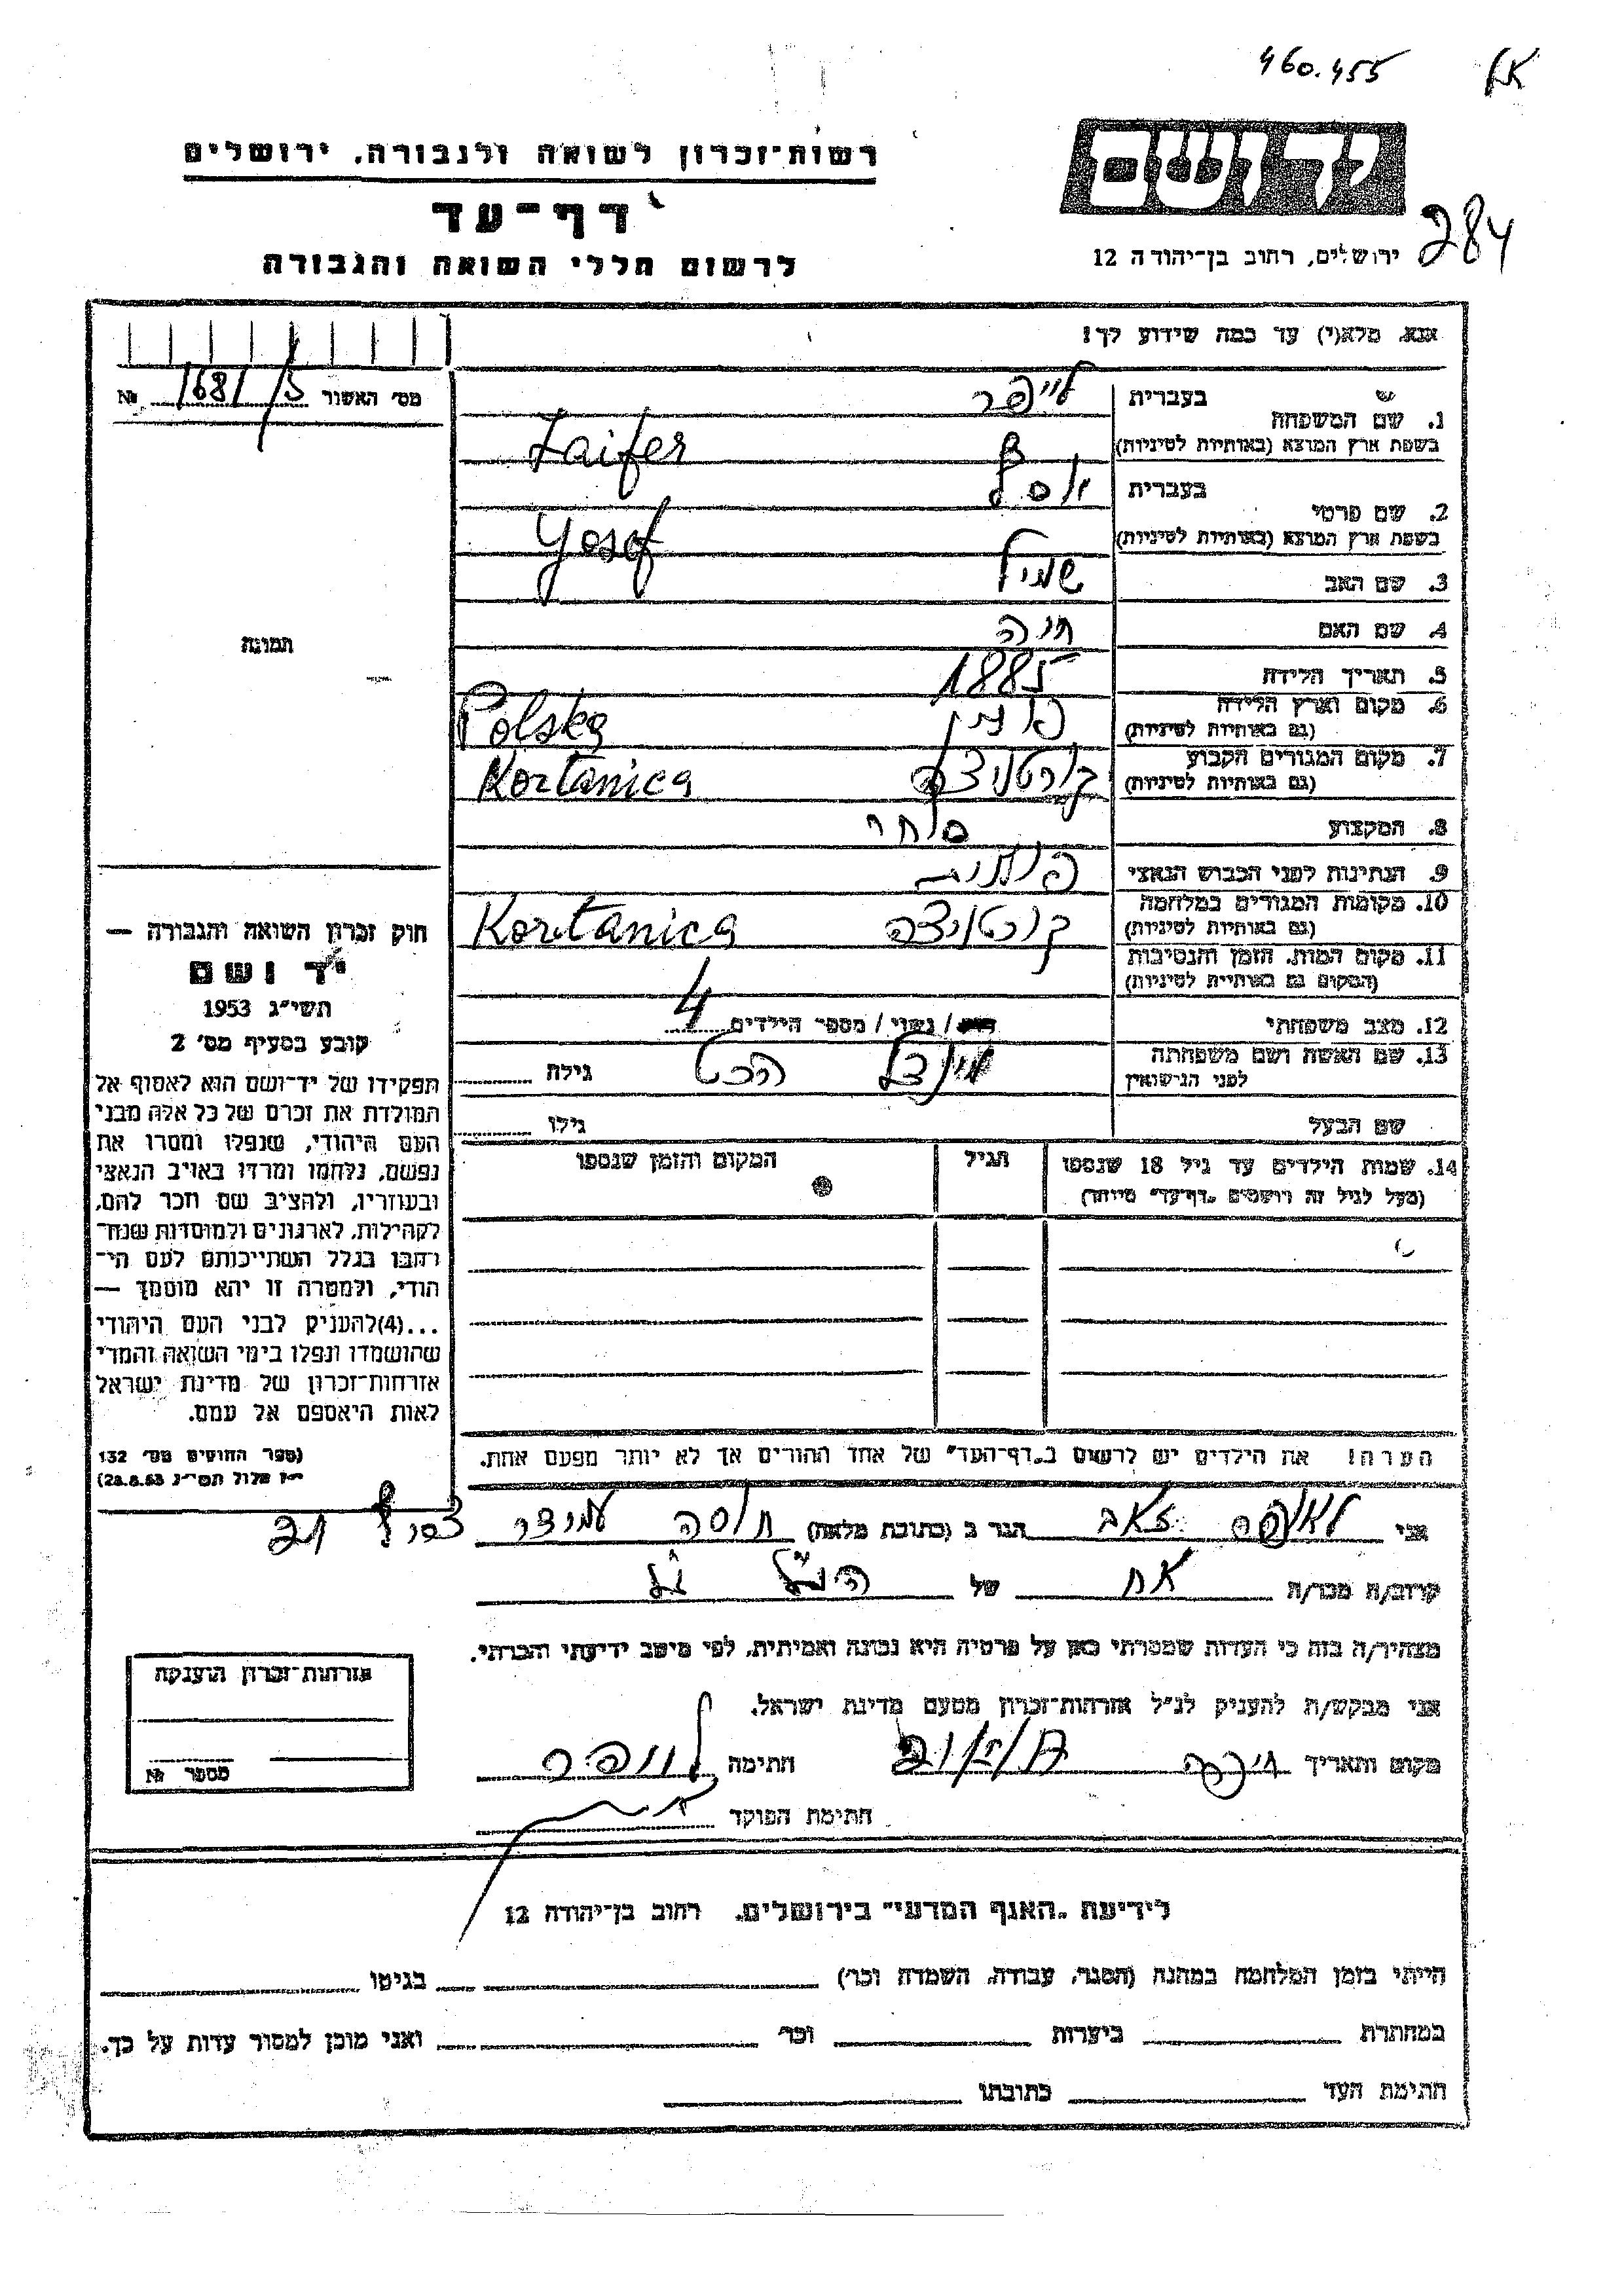 460.455
רשות־זכרון לשואה ולגבורה, ירושלים
דף־עד
לרשום חללי השואה והגבורה
יד ושם
ירושלים, רחוב בן־יהודה 12
284
אנא, מלא(י) עד כמה שידוע לך!
מס׳ האשור № 1681/5
1. שם המשפחה
בעברית לייפר
בשפת ארץ המוצא (באותיות לטיניות) Laifer
2. שם פרטי
בעברית יוסף
בשפת ארץ המוצא (באותיות לטיניות) Yosef
3. שם האב שמיל
4. שם האם חיה
5. תאריך הלידה 1885
6. מקום וארץ הלידה פולין Polska
(גם באותיות לטיניות)
7. מקום המגורים הקבוע קורטניצה Kortanica
(גם באותיות לטיניות)
8. המקצוע סוחר
9. הנתינות לפני הכבוש הנאצי פולנית
10. מקומות המגורים במלחמה קורטניצה Kortanica
(גם באותיות לטיניות)
11. מקום המות, הזמן והנסיבות
(המקום גם באותיות לטיניות)
12. מצב משפחתי רווק / נשוי / מספר הילדים 4
13. שם האשה ושם משפחתה הכט גילה
לפני הנישואין
שם הבעל גילו
14. שמות הילדים עד גיל 18 שנספו הגיל המקום והזמן שנספו
(מעל לגיל זה רושמים „דף־עד״ מיוחד)
הערה! את הילדים יש לרשום ב„דף־העד״ של אחד ההורים אך לא יותר מפעם אחת.
תמונה
חוק זכרון השואה והגבורה —
יד ושם
תשי״ג 1953
קובע בסעיף מס׳ 2
תפקידו של יד־ושם הוא לאסוף אל
המולדת את זכרם של כל אלה מבני
העם היהודי, שנפלו ומסרו את
נפשם, נלחמו ומרדו באויב הנאצי
ובעוזריו, ולהציב שם וזכר להם,
לקהילות, לארגונים ולמוסדות שנח־
רבו בגלל השתייכותם לעם הי־
הודי, ולמטרה זו יהא מוסמך —
...(4)להעניק לבני העם היהודי
שהושמדו ונפלו בימי השואה והמרי
אזרחות־זכרון של מדינת ישראל
לאות היאספם אל עמם.
(ספר החוקים מס׳ 132
י״ז אלול תשי״ג 28.8.53)
אני זאב הגר ב (כתובת מלאה) 21
קרוב/ה מכר/ה אח של הנ״ל
מצהיר/ה בזה כי העדות שמסרתי כאן על פרטיה היא נכונה ואמיתית, לפי מיטב ידיעתי והכרתי.
אני מבקש/ת להעניק לנ״ל אזרחות־זכרון מטעם מדינת ישראל.
מקום ותאריך חיפה חתימה לייפר
חתימת הפוקד
אזרחות־זכרון הוענקה
מספר №
לידיעת „האגף המדעי״ בירושלים, רחוב בן־יהודה 12
הייתי בזמן המלחמה במחנה (הסגר, עבודה, השמדה וכר׳) בגיטו
במחתרת ביערות וכר׳ ואני מוכן למסור עדות על כך.
חתימת העד כתובתו